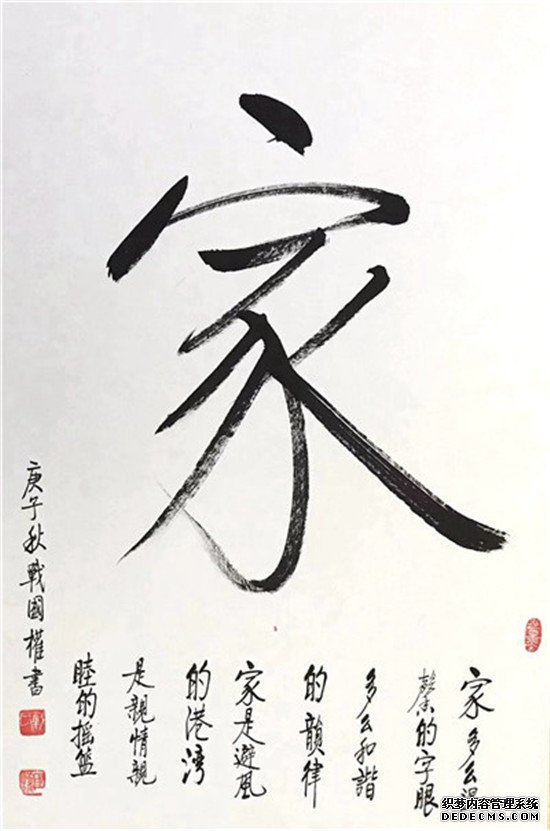 家
家多么温
馨的字眼
多么和諧
的韻律
家是避风
的港湾
是親情親
睦的摇篮
庚子秋戰國權書
织梦内容管理系统
DEDECMS.COM